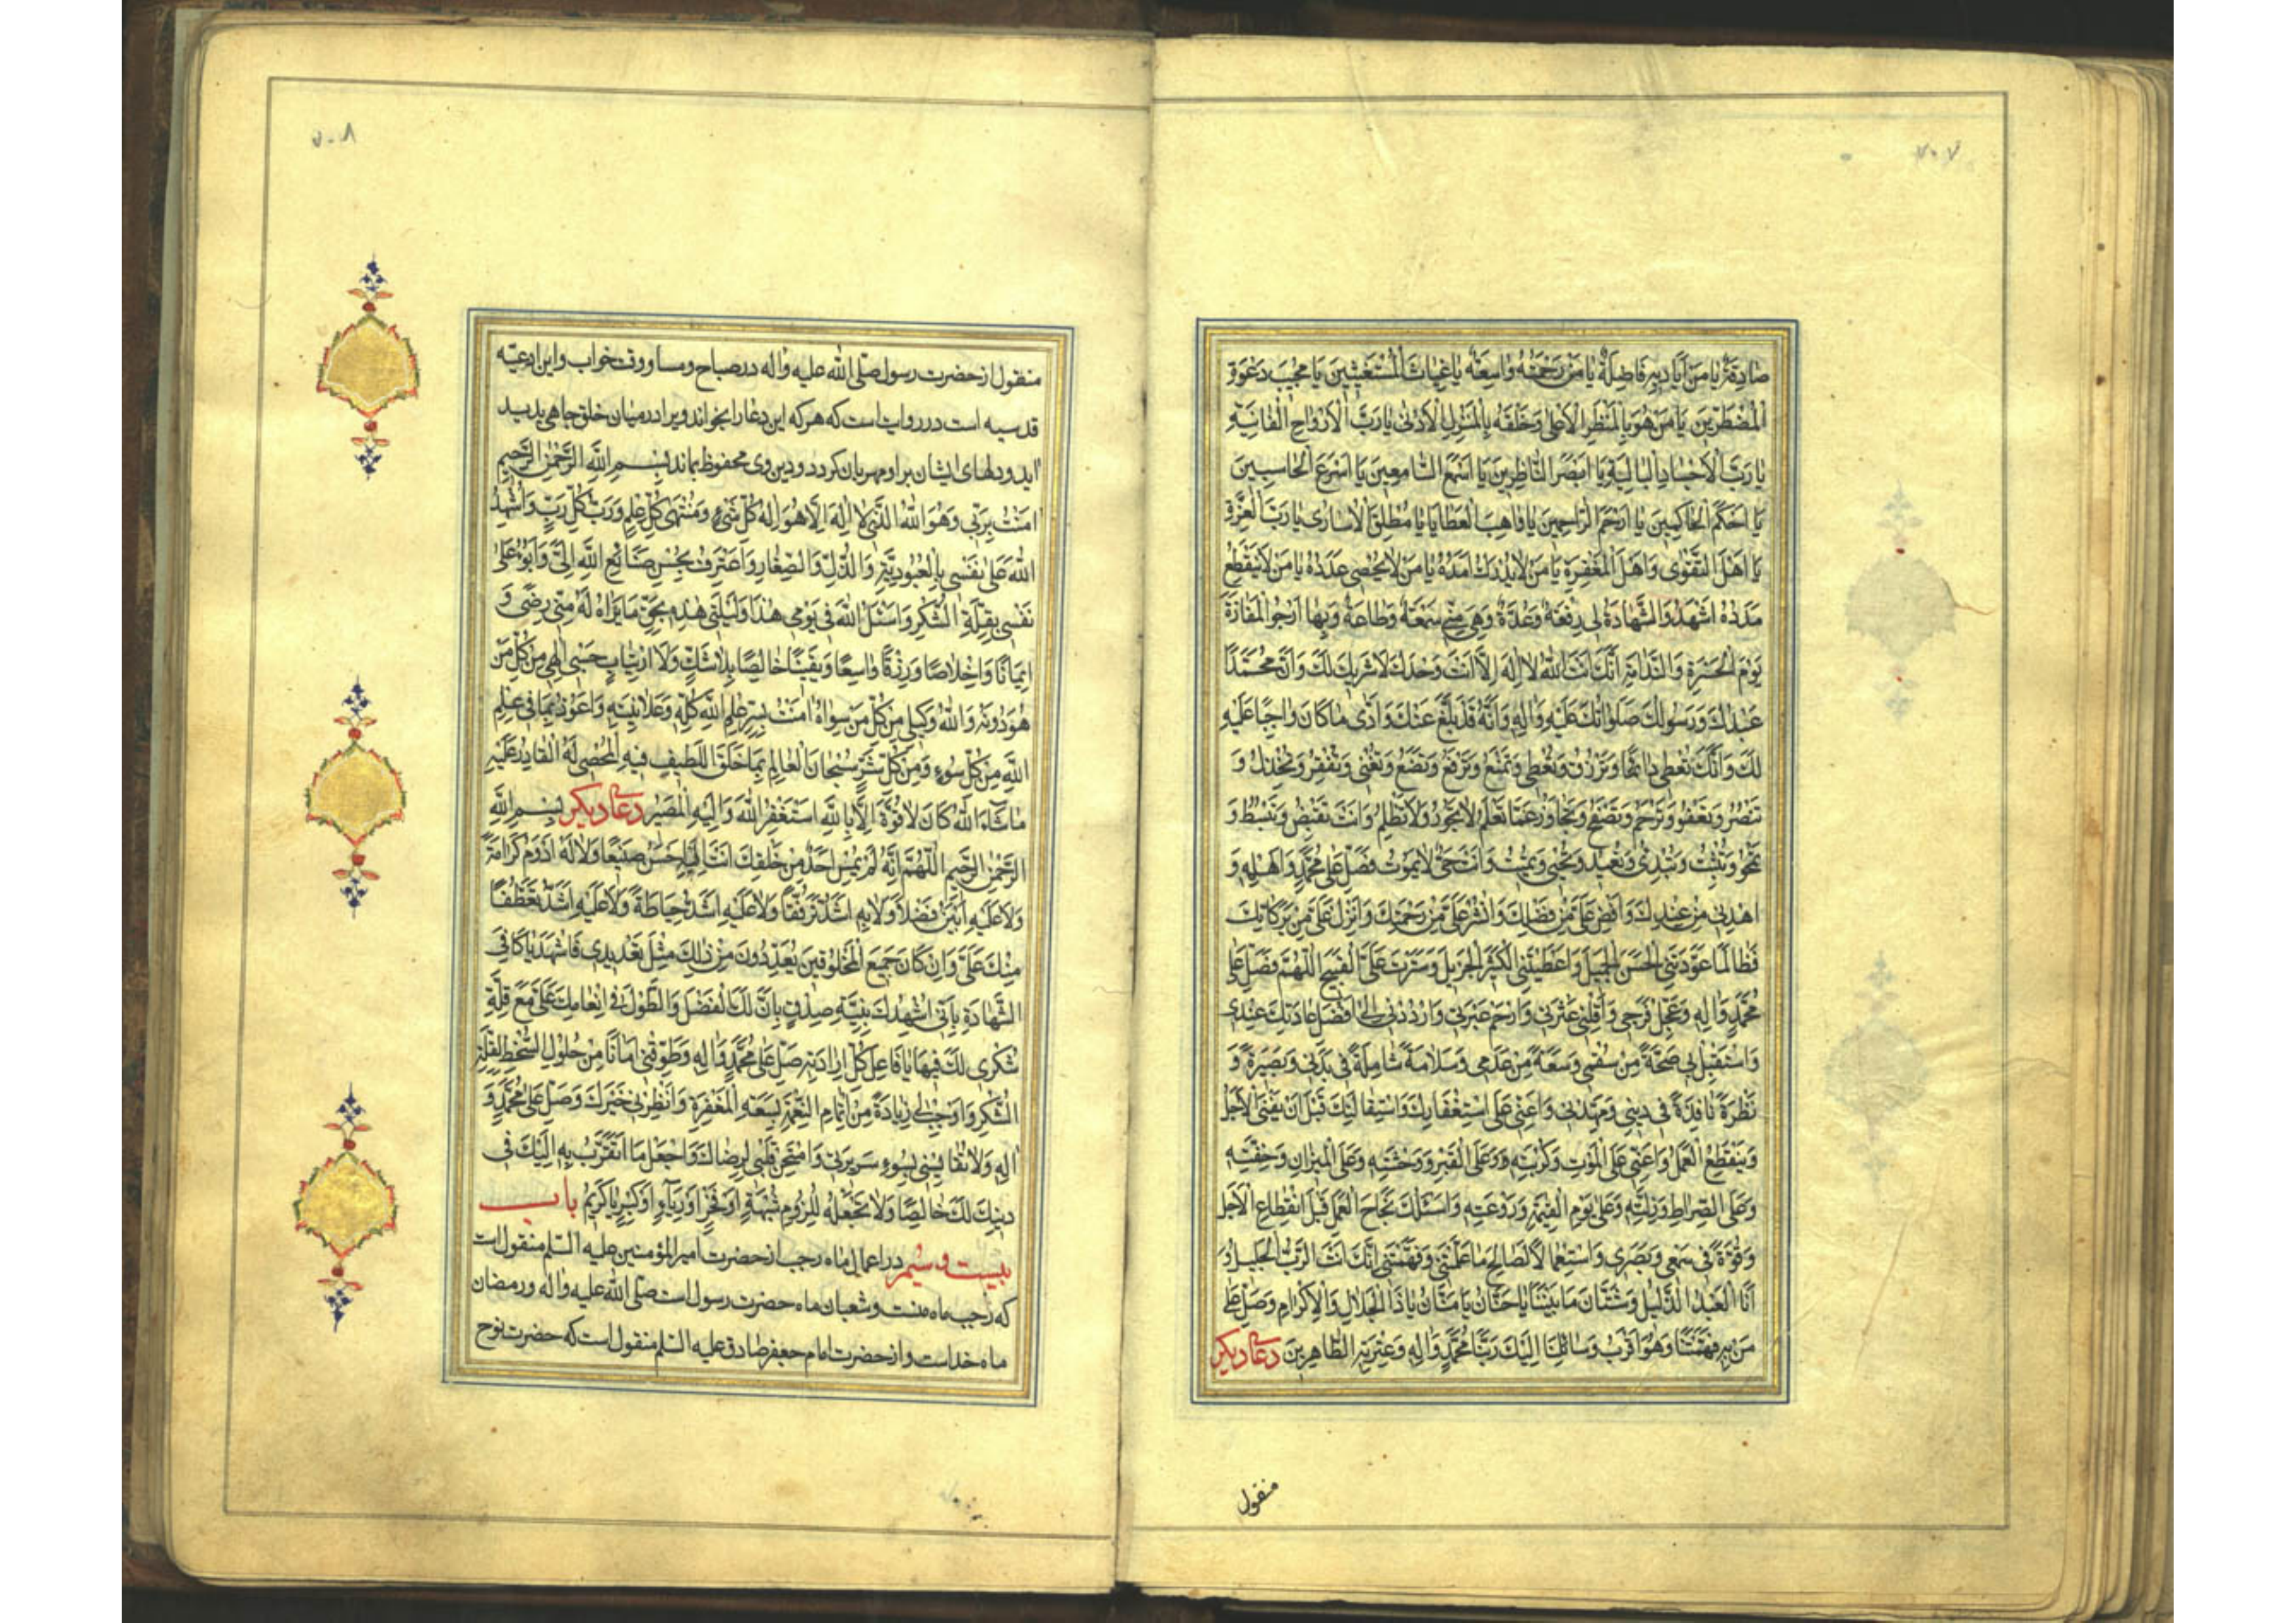 ۷۰۷
صَادِقَةٌ يَا مَنْ اَيَادِيهِ فَاضِلَةٌ يَا مَنْ رَحْمَتُهُ وَاسِعَةٌ يَا غِيَاثَ الْمُسْتَغِيثِينَ يَا مُجِيبَ دَعْوَةِ
الْمُضْطَرِّينَ يَا مَنْ هُوَ بِالْمَنْظَرِ الْاَعْلٰى وَخَلْقُهُ بِالْمَنْزِلِ الْاَدْنٰى يَا رَبَّ الْاَرْوَاحِ الْفَانِيَةِ
يَا رَبَّ الْاَجْسَادِ الْبَالِيَةِ يَا اَبْصَرَ النَّاظِرِينَ يَا اَسْمَعَ السَّامِعِينَ يَا اَسْرَعَ الْحَاسِبِينَ
يَا اَحْكَمَ الْحَاكِمِينَ يَا اَرْحَمَ الرَّاحِمِينَ يَا وَاهِبَ الْعَطَايَا يَا مُطْلِقَ الْاُسَارٰى يَا رَبَّ الْعِزَّةِ
يَا اَهْلَ التَّقْوٰى وَاَهْلَ الْمَغْفِرَةِ يَا مَنْ لَا يُدْرَكُ اَمَدُهُ يَا مَنْ لَا يُحْصٰى عَدَدُهُ يَا مَنْ لَا يَنْقَطِعُ
مَدَدُهُ اَشْهَدُ وَالشَّهَادَةُ لِى رِفْعَةٌ وَعُدَّةٌ وَهِىَ مِنِّى سَمْعَةٌ وَطَاعَةٌ وَبِهَا اَرْجُو الْمَفَازَةَ
يَوْمَ الْحَسْرَةِ وَالنَّدَامَةِ اَنَّكَ اَنْتَ اللّٰهُ لَا اِلٰهَ اِلَّا اَنْتَ وَحْدَكَ لَا شَرِيكَ لَكَ وَاَنَّ مُحَمَّدًا
عَبْدُكَ وَرَسُولُكَ صَلَوَاتُكَ عَلَيْهِ وَاٰلِهِ وَاَنَّهُ قَدْ بَلَّغَ عَنْكَ وَاَدّٰى مَا كَانَ وَاجِبًا عَلَيْهِ
لَكَ وَاَنَّكَ تُعْطِى دَائِمًا وَتَرْزُقُ وَتُعْطِى وَتَمْنَعُ وَتَرْفَعُ وَتَضَعُ وَتُغْنِى وَتُفْقِرُ وَتَخْذُلُ وَ
تَنْصُرُ وَتَعْفُو وَتَرْحَمُ وَتَصْفَحُ وَتَجَاوَزُ عَمَّا تَعْلَمُ وَلَا تَجُورُ وَلَا تَظْلِمُ وَاَنْتَ تَقْبِضُ وَتَبْسُطُ وَ
تَمْحُو وَتُثْبِتُ وَتُبْدِئُ وَتُعِيدُ وَتُحْيِى وَتُمِيتُ وَاَنْتَ حَىٌّ لَا يَمُوتُ فَصَلِّ عَلٰى مُحَمَّدٍ وَاٰهْلِهِ وَ
اهْدِنِى مِنْ عِنْدِكَ وَاَفِضْ عَلَىَّ مِنْ فَضْلِكَ وَانْشُرْ عَلَىَّ مِنْ رَحْمَتِكَ وَاَنْزِلْ عَلَىَّ مِنْ بَرَكَاتِكَ
فَطَالَمَا عَوَّدْتَنِى الْحَسَنَ الْجَمِيلَ وَاَعْطَيْتَنِى الْكَثِيرَ الْجَزِيلَ وَسَتَرْتَ عَلَىَّ الْقَبِيحَ اللّٰهُمَّ فَصَلِّ عَلٰى
مُحَمَّدٍ وَاٰلِهِ وَعَجِّلْ فَرَجِى وَاَقِلْنِى عَثْرَتِى وَارْحَمْ عَبْرَتِى وَارْدُدْنِى اِلٰى اَفْضَلِ عَادَتِكَ عِنْدِى
وَاسْتَقْبِلْ بِى صِحَّةً مِنْ سُقْمِى وَسَعَةً مِنْ عَدَمِى وَسَلَامَةً شَامِلَةً فِى بَدَنِى وَبَصِيرَةً وَ
نَظْرَةً نَافِذَةً فِى دِينِى وَمَهِّدْنِى وَاَعِنِّى عَلَى اسْتِغْفَارِكَ وَاسْتِقَالَتِكَ قَبْلَ اَنْ يَفْنَى الْاَجَلُ
وَيَنْقَطِعَ الْعَمَلُ وَاَعِنِّى عَلَى الْمَوْتِ وَكُرْبَتِهِ وَعَلَى الْقَبْرِ وَوَحْشَتِهِ وَعَلَى الْمِيزَانِ وَخِفَّتِهِ
وَعَلَى الصِّرَاطِ وَزَلَّتِهِ وَعَلٰى يَوْمِ الْقِيٰمَةِ وَرَوْعَتِهِ وَاَسْئَلُكَ نَجَاحَ الْعَمَلِ قَبْلَ انْقِطَاعِ الْاَجَلِ
وَقُوَّةً فِى سَمْعِى وَبَصَرِى وَاسْتِعْمَالًا لِصَالِحِ مَا عَلَّمْتَنِى وَفَهَّمْتَنِى اِنَّكَ اَنْتَ الرَّبُّ الْجَلِيلُ وَ
اَنَا الْعَبْدُ الذَّلِيلُ وَشَتَّانَ مَا بَيْنَنَا يَا حَنَّانُ يَا مَنَّانُ يَا ذَا الْجَلَالِ وَالْاِكْرَامِ وَصَلِّ عَلٰى
مَنْ بِهِ فَهَّمْتَنَا وَهُوَ اَقْرَبُ وَسَائِلِنَا اِلَيْكَ رَبَّنَا مُحَمَّدٍ وَاٰلِهِ وَعِتْرَتِهِ الطَّاهِرِينَ دعای دیکر
منقول
۷۰۸
منقول از حضرت رسول صلّی اللّه علیه واله در صباح ومسا و وقت خواب واین ادعیّه
قدسیه است در روایت است که هر که این دعا را بخواند ویرا در میان خلق جاهی پدید
اید و دلهای ایشان بر او مهربان کردد و دین وی محفوظ بماند بِسْمِ اللّٰهِ الرَّحْمٰنِ الرَّحِيمِ
اٰمَنْتُ بِرَبِّى وَهُوَ اللّٰهُ الَّذِى لَا اِلٰهَ اِلَّا هُوَ اِلٰهُ كُلِّ شَىْءٍ وَمُنْتَهٰى كُلِّ عِلْمٍ وَرَبُّ كُلِّ رَبٍّ وَاُشْهِدُ
اللّٰهَ عَلٰى نَفْسِى بِالْعُبُودِيَّةِ وَالذُّلِّ وَالصَّغَارِ وَاَعْتَرِفُ بِحُسْنِ صَنَائِعِ اللّٰهِ اِلَىَّ وَاَبُوءُ عَلٰى
نَفْسِى بِقِلَّةِ الشُّكْرِ وَاَسْئَلُ اللّٰهَ فِى يَوْمِى هٰذَا وَلَيْلَتِى هٰذِهِ بِحَقِّ مَا يَرَاهُ لَهُ مِنِّى رِضًى وَ
اِيمَانًا وَاِخْلَاصًا وَرِزْقًا وَاسِعًا وَيَقِينًا خَالِصًا بِلَا شَكٍّ وَلَا ارْتِيَابٍ حَسْبِى اِلٰهِى مِنْ كُلِّ مَنْ
هُوَ دُونَهُ وَاللّٰهُ وَكِيلِى مِنْ كُلِّ مَنْ سِوَاهُ اٰمَنْتُ بِسِرِّ عِلْمِ اللّٰهِ كُلِّهِ وَعَلَانِيَتِهِ وَاَعُوذُ بِمَا فِى عِلْمِ
اللّٰهِ مِنْ كُلِّ سُوءٍ وَمِنْ كُلِّ شَرٍّ سُبْحَانَ الْعَالِمِ بِمَا خَلَقَ اللَّطِيفِ فِيهِ الْمُحْصِى لَهُ الْقَادِرِ عَلَيْهِ
مَا شَاءَ اللّٰهُ كَانَ لَا قُوَّةَ اِلَّا بِاللّٰهِ اَسْتَغْفِرُ اللّٰهَ وَاِلَيْهِ الْمَصِيرُ دعای دیکر بِسْمِ اللّٰهِ
الرَّحْمٰنِ الرَّحِيمِ اللّٰهُمَّ اِنَّهُ لَمْ يُمْسِ اَحَدٌ مِنْ خَلْقِكَ اَنْتَ اِلَيْهِ اَحْسَنُ صَنِيعًا وَلَا لَهُ اَدْوَمُ كَرَامَةً
وَلَا عَلَيْهِ اَبْيَنُ فَضْلًا وَلَا بِهِ اَشَدُّ تَرَفُّقًا وَلَا عَلَيْهِ اَشَدُّ حِيَاطَةً وَلَا عَلَيْهِ اَشَدُّ تَعَطُّفًا
مِنْكَ عَلَىَّ وَاِنْ كَانَ جَمِيعُ الْمَخْلُوقِينَ يُعَدِّدُونَ مِنْ ذٰلِكَ مِثْلَ تَعْدِيدِى فَاشْهَدْ يَا كَافِى
الشَّهَادَةِ بِاَنِّى اُشْهِدُكَ بِنِيَّةِ صِدْقٍ بِاَنَّ لَكَ الْفَضْلَ وَالطَّوْلَ فِى اِنْعَامِكَ عَلَىَّ مَعَ قِلَّةِ
شُكْرِى لَكَ فِيهَا يَا فَاعِلَ كُلِّ اِرَادَتِهِ صَلِّ عَلٰى مُحَمَّدٍ وَاٰلِهِ وَطَوِّقْنِى اَمَانًا مِنْ حُلُولِ السَّخَطِ لِقِلَّةِ
الشُّكْرِ وَاَوْجِبْ لِى زِيَادَةً مِنْ اِتْمَامِ النِّعْمَةِ بِسَعَةِ الْمَغْفِرَةِ وَانْظُرْنِى خَيْرَكَ وَصَلِّ عَلٰى مُحَمَّدٍ وَ
اٰلِهِ وَلَا تُقَايِسْنِى بِسُوءِ سَرِيرَتِى وَامْتَحِنْ قَلْبِى لِرِضَاكَ وَاجْعَلْ مَا اَتَقَرَّبُ بِهِ اِلَيْكَ فِى
دِينِكَ لَكَ خَالِصًا وَلَا تَجْعَلْهُ لِلُزُومِ شُبْهَةٍ اَوْ فَخْرٍ اَوْ رِيَاءٍ اَوْ كِبْرٍ يَا كَرِيمُ باب
بیست و سیّم در اعمال ماه رجب از حضرت امیر المؤمنین علیه السّلم منقول است
که رجب ماه منست وشعبان ماه حضرت رسول است صلّی اللّه علیه واله ورمضان
ماه خداست واز حضرت امام جعفر صادق علیه السّلم منقول است که حضرت نوح